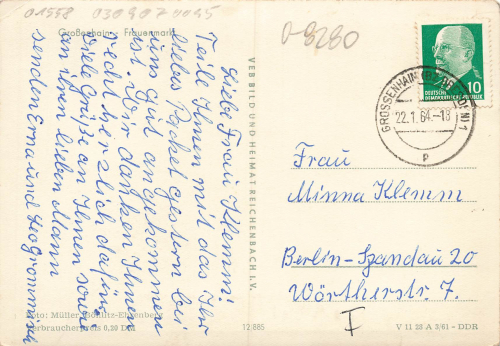 01558 0309070045
0-8280
Großenhain - Frauenmarkt
Liebe Frau Klemm!
Teile Ihnen mit das Ihr
liebes Packet gestern bei
uns gut angekommen
ist. Wir danken Ihnen
recht herzlich dafür
Viele Grüße an Ihnen sowie
an ihren lieben Mann
senden Erna und Leo
Foto: Müller, Görlitz-
Verbraucherpreis 0,20 DM
VEB BILD UND HEIMAT REICHENBACH I.V.
12 885
DEUTSCHE
DEMOKRATISCHE REPUBLIK
10
GROSSENHAIN (BZ DRESDEN) 1
22.1.64.-18
p
Frau
Minna Klemm
Berlin-Spandau 20
Wörtherstr. 7.
I
V 11 28 A 3/61 - DDR